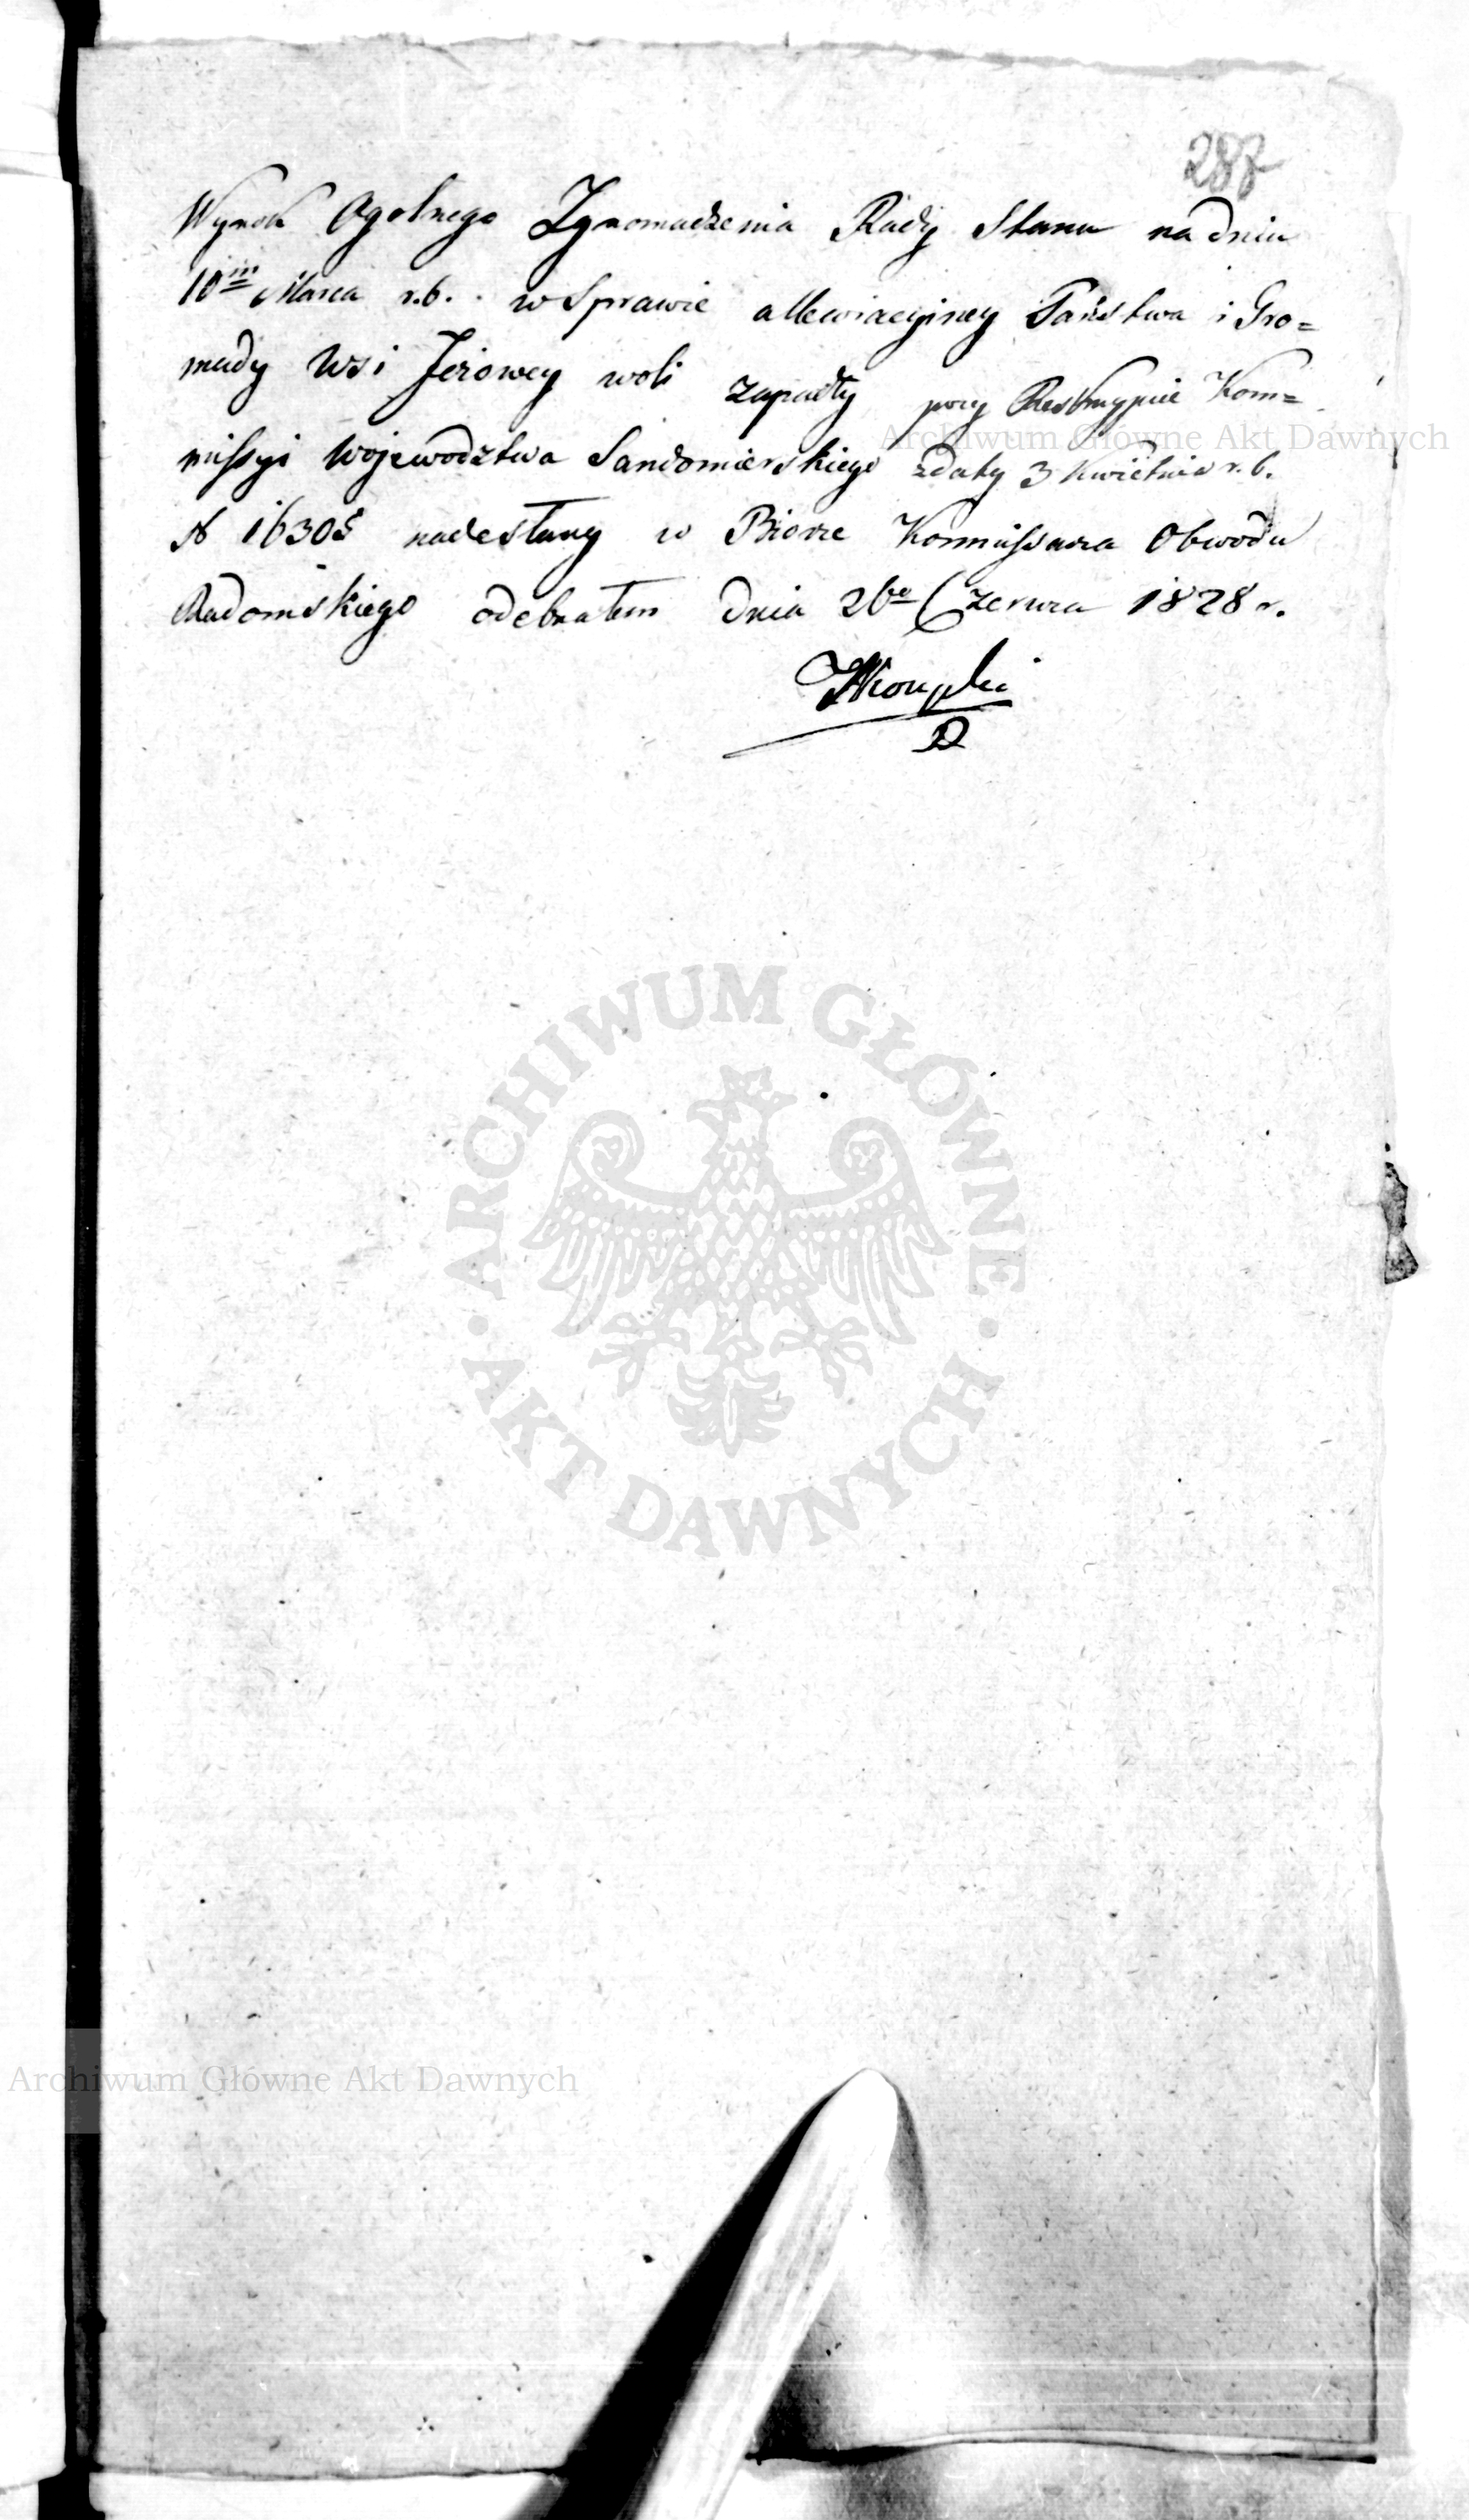 287
Wyrok Ogolnego Zgromadzenia Rady Stanu na dniu
10m Marca r.b. w Sprawie allewiacyiney Państwa i Gro=
mady Wsi Jezowey woli zapadły przy Reskrypcie Kom=
missyi Wojewodztwa Sandomierskiego z daty 3 Kwietnia r.b.
N 16305 nadesłany w Biorze Kommissarza Obwodu
Radomskiego odebrałem dnia 26o Czerwca 1828 r.
Archiwum Główne Akt Dawnych
ARCHIWUM GŁÓWNE
· AKT DAWNYCH ·
Archiwum Główne Akt Dawnych